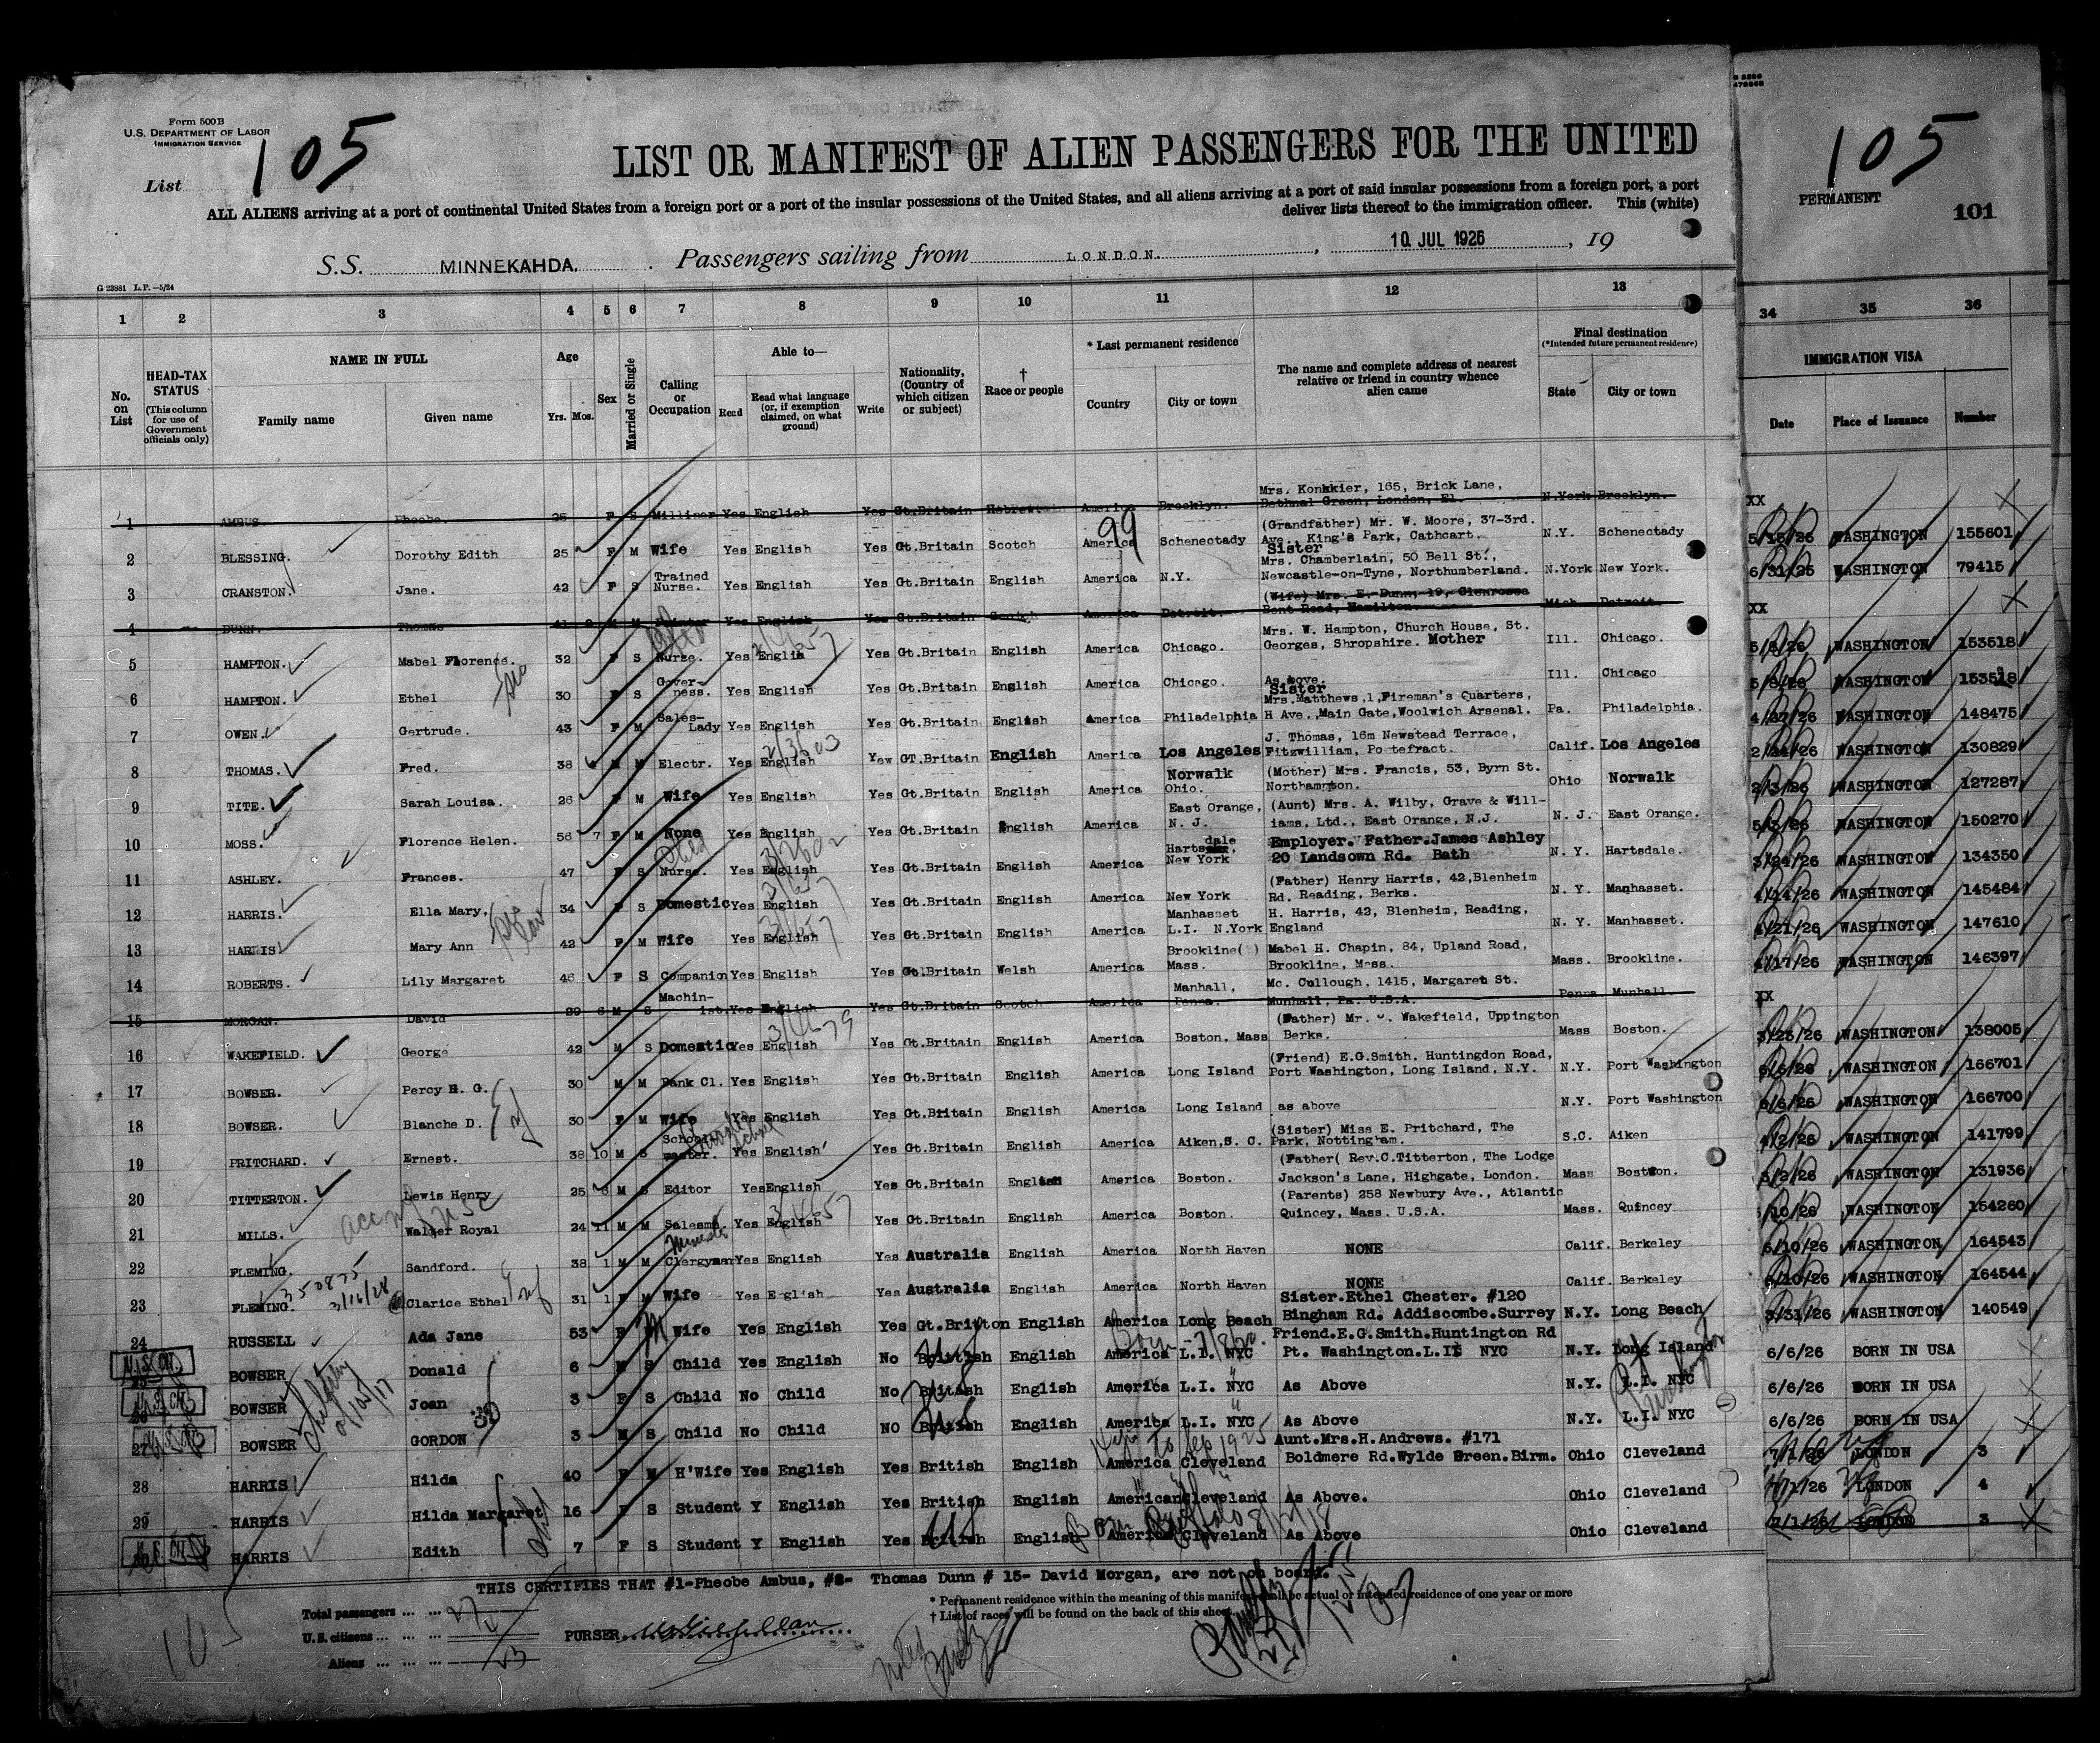 Form 500B
U.S. DEPARTMENT OF LABOR
IMMIGRATION SERVICE
List 105
LIST OR MANIFEST OF ALIEN PASSENGERS FOR THE UNITED
ALL ALIENS arriving at a port of continental United States from a foreign port or a port of the insular possessions of the United States, and all aliens arriving at a port of said insular possessions from a foreign port, a port
deliver lists thereof to the immigration officer. This (white)
S.S. MINNEKAHDA. Passengers sailing from LONDON. , 10 JUL 1926 , 19
G 23881 L.P.—5/24
105
PERMANENT
101
1 2 3 4 5 6 7 8 9 10 11 12 13 34 35 36
No. on List
HEAD-TAX STATUS (This column for use of Government officials only)
NAME IN FULL
Family name Given name
Age
Yrs. Mos.
Sex
Married or Single
Calling or Occupation
Able to—
Read
Read what language (or, if exemption claimed, on what ground)
Write
Nationality, (Country of which citizen or subject)
† Race or people
* Last permanent residence
Country City or town
The name and complete address of nearest relative or friend in country whence alien came
Final destination
(*Intended future permanent residence)
State City or town
IMMIGRATION VISA
Date Place of Issuance Number
1 AMBUS. Phoebe. 25 F S Milliner Yes English Yes Gt.Britain Hebrew America Brooklyn. Mrs. Konkkier, 165, Brick Lane, Bethnal Green, London, E1. N.York Brooklyn. XX
2 BLESSING. Dorothy Edith 25 F M Wife Yes English Yes Gt.Britain Scotch America 99 Schenectady (Grandfather) Mr. W. Moore, 37-3rd. Ave., King's Park, Cathcart. N.Y. Schenectady WASHINGTON 155601
3 CRANSTON. Jane. 42 F S Trained Nurse. Yes English Yes Gt.Britain English America N.Y. Sister Mrs. Chamberlain, 50 Bell St., Newcastle-on-Tyne, Northumberland. N.York New York. 6/31/25 WASHINGTON 79415
4 DUNN. Thomas 41 M M Painter Yes English Yes Gt.Britain America Detroit. (Wife) Mrs. E. Dunn, 19, Glenrossa Bent Road, Hamilton. Mich. Detroit. XX
5 HAMPTON. Mabel Florence. 32 F S Nurse. Yes English Yes Gt.Britain English America Chicago. Mrs. W. Hampton, Church House, St. Georges, Shropshire. Mother Ill. Chicago. WASHINGTON 153518
6 HAMPTON. Ethel 30 F S Governess. Yes English Yes Gt.Britain English America Chicago. As above. Ill. Chicago WASHINGTON 153518
7 OWEN. Gertrude. 43 F M Sales-Lady Yes English Yes Gt.Britain English America Philadelphia Sister Mrs.Matthews,1,Fireman's Quarters, H Ave.,Main Gate,Woolwich Arsenal. Pa. Philadelphia. 4/27/26 WASHINGTON 148475
8 THOMAS. Fred. 38 M M Electr. Yes English Yew GT.Britain English America Los Angeles J. Thomas, 16m Newstead Terrace, Fitzwilliam, Pontefract. Calif. Los Angeles 2/24/26 WASHINGTON 130829
9 TITE. Sarah Louisa. 26 F M Wife Yes English Yes Gt.Britain English America Norwalk Ohio. (Mother) Mrs. Francis, 53, Byrn St. Northampton. Ohio Norwalk 2/3/26 WASHINGTON 127287
10 MOSS. Florence Helen. 56 7 F M None Yes English Yes Gt.Britain English America East Orange, N. J. (Aunt) Mrs. A. Wilby, Grave & Williams, Ltd., East Orange, N.J. N. J. East Orange. 5/3/26 WASHINGTON 150270
11 ASHLEY. Frances. 47 F S Child Nurse. Yes English Yes Gt.Britain English America Hartsdale, New York Employer. Father.James Ashley 20 Landsown Rd. Bath N. Y. Hartsdale. 3/24/26 WASHINGTON 134350
12 HARRIS. Ella Mary, 34 F S Domestic Yes English Yes Gt.Britain English America New York (Father) Henry Harris, 42,Blenheim Rd. Reading, Berks. N. Y. Manhasset. 4/14/26 WASHINGTON 145484
13 HARRIS Mary Ann 42 F M Wife Yes English Yes Gt.Britain English America Manhasset L.I. N.York H. Harris, 42, Blenheim, Reading, England N. Y. Manhasset. 4/21/26 WASHINGTON 147610
14 ROBERTS. Lily Margaret 46 F S Companion Yes English Yes Gt.Britain Welsh America Brookline( ) Mass. Mabel H. Chapin, 84, Upland Road, Brookline, Mass. Mass. Brookline. 4/17/26 WASHINGTON 146397
15 MORGAN. David 29 6 M S Machinist. Yes English Yes Gt.Britain Scotch America Manhall, Penna. Mc. Cullough, 1415, Margaret St. Munhall, Pa. U.S.A. Penna Munhall XX
16 WAKEFIELD. George 42 M S Domestic Yes English Yes Gt.Britain English America Boston, Mass (Father) Mr. Wakefield, Uppington Berks. Mass Boston. 3/23/26 WASHINGTON 138005
17 BOWSER. Percy H. G. 30 M M Bank Cl. Yes English Yes Gt.Britain English America Long Island (Friend) E.G.Smith, Huntingdon Road, Port Washington, Long Island, N.Y. N.Y. Port Washington 6/6/26 WASHINGTON 166701
18 BOWSER. Blanche D. 30 F M Wife Yes English Yes Gt.Britain English America Long Island as above N.Y. Port Washington 6/6/26 WASHINGTON 166700
19 PRITCHARD. Ernest. 38 10 M S Schoolmaster. Yes English Yes Gt.Britain English America Aiken,S. C. (Sister) Miss E. Pritchard, The Park, Nottingham. S.C. Aiken 4/2/26 WASHINGTON 141799
20 TITTERTON. Lewis Henry 25 6 M S Editor Yes English Yes Gt.Britain English America Boston. (Father( Rev.C.Titterton, The Lodge Jackson's Lane, Highgate, London. Mass Boston. WASHINGTON 131936
21 MILLS. Walter Royal 24 11 M M Salesmn. Yes English Yes Gt.Britain English America Boston. (Parents) 258 Newbury Ave., Atlantic Quincey, Mass. U.S.A. Mass. Quincey WASHINGTON 154260
22 FLEMING. Sandford. 38 1 M M Clergyman Yes English Yes Australia English America North Haven NONE Calif. Berkeley WASHINGTON 164543
23 FLEMING. 350875 3/16/28 Clarice Ethel 31 1 F M Wife Yes English Yes Australia English America North Haven NONE Calif. Berkeley WASHINGTON 164544
24 RUSSELL Ada Jane 53 F M Wife Yes English Yes Gt.Britton English America Long Beach Sister.Ethel Chester. #120 Bingham Rd. Addiscombe.Surrey N.Y. Long Beach 3/31/26 WASHINGTON 140549
BOWSER Donald 6 M S Child Yes English No British English America L.I. NYC Friend.E.G.Smith.Huntington Rd Pt. Washington.L.I NYC N.Y. Long Island 6/6/26 BORN IN USA
BOWSER Joan 3 F S Child No Child No British English America L.I. NYC As Above N.Y. L.I. NYC 6/6/26 BORN IN USA
27 BOWSER GORDON 3 M S Child No Child NO British English America L.I. NYC As Above N.Y. L.I. NYC 6/6/26 BORN IN USA
28 HARRIS Hilda 40 F M H'Wife Yes English Yes British English America Cleveland Aunt.Mrs.H.Andrews. #171 Boldmere Rd.Wylde Green.Birm. Ohio Cleveland 7/1/26 LONDON 3
29 HARRIS Hilda Margaret 16 F S Student Y English Yes British English American Cleveland As Above. Ohio Cleveland 7/1/26 LONDON 4
HARRIS Edith 7 F S Student Y English Yes British English America Cleveland As Above Ohio Cleveland 7/1/26 LONDON 3
THIS CERTIFIES THAT #1-Pheobe Ambus, Thomas Dunn # 15- David Morgan, are not on board.
* Permanent residence within the meaning of this manifest shall be actual or intended residence of one year or more
† List of races will be found on the back of this sheet.
Total passengers ... ...
U.S. citizens ... ...
Aliens ... ... ...
PURSER
105